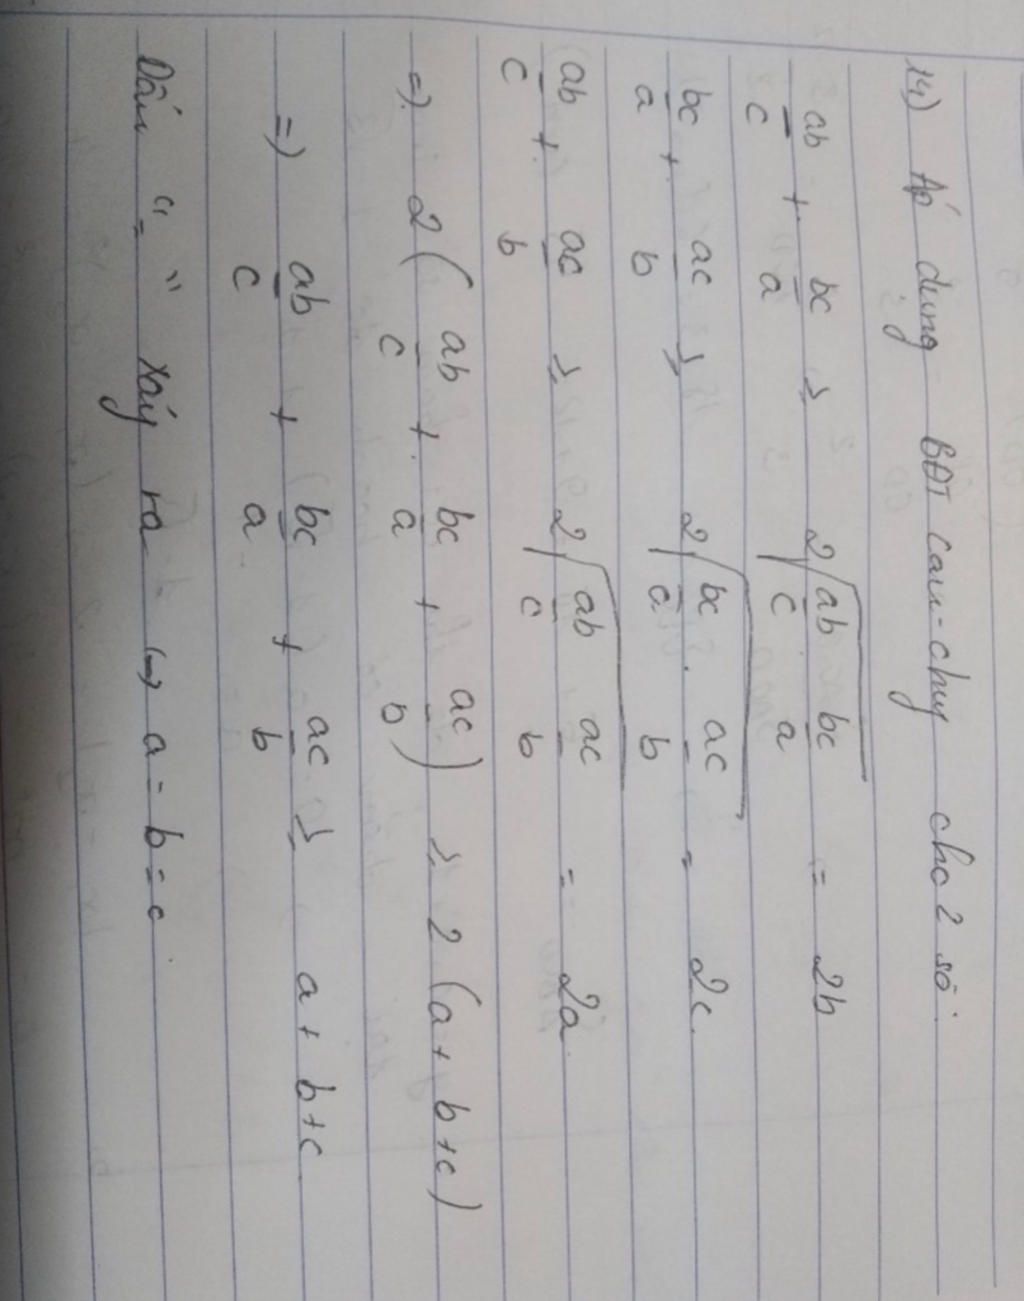 14) Áp dụng BĐT cauchy cho 2 số:
ab/c + bc/a ≥ 2√(ab/c · bc/a) = 2b
bc/a + ac/b ≥ 2√(bc/a · ac/b) = 2c
ab/c + ac/b ≥ 2√(ab/c · ac/b) = 2a
=> 2(ab/c + bc/a + ac/b) ≥ 2(a+b+c)
=> ab/c + bc/a + ac/b ≥ a+b+c
Dấu "=" xảy ra <=> a=b=c